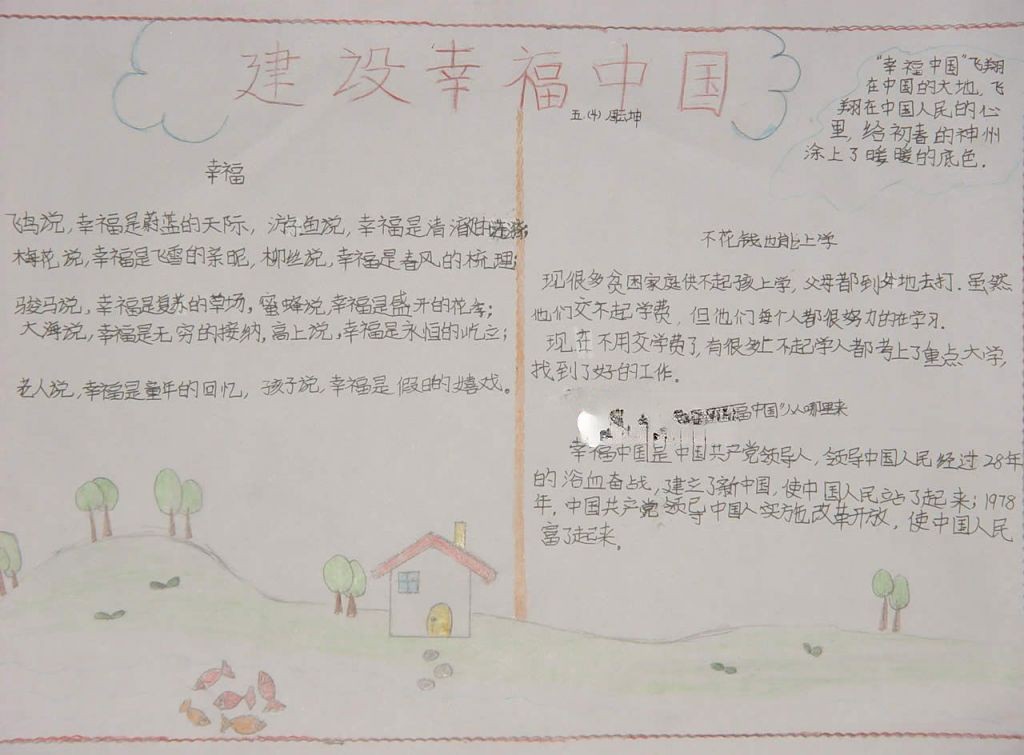 建设幸福中国
五(4)
"幸福中国"飞翔
在中国的大地,飞
翔在中国人民的心
里,给初春的神州
涂上了暖暖的底色.
幸福
飞鸟说,幸福是蔚蓝的天际,游鱼说,幸福是清澈的
梅花说,幸福是飞雪的亲昵,柳丝说,幸福是春风的梳理;
骏马说,幸福是复苏的草场,蜜蜂说,幸福是盛开的花季;
大海说,幸福是无穷的接纳,高山说,幸福是永恒的屹立;
老人说,幸福是童年的回忆,孩子说,幸福是假日的嬉戏。
不花钱也能上学
现很多贫困家庭供不起孩上学,父母都到外地去打.虽然
他们交不起学费,但他们每个人都很努力的在学习.
现在不用交学费了,有很多上不起学人都考上了重点大学,
找到了好的工作。
福中国"从哪里来
幸福中国是中国共产党领导人,领导中国人民经过28年
的浴血奋战,建立了新中国,使中国人民站了起来;1978
年,中国共产党领导中国人实施改革开放,使中国人民
富了起来。